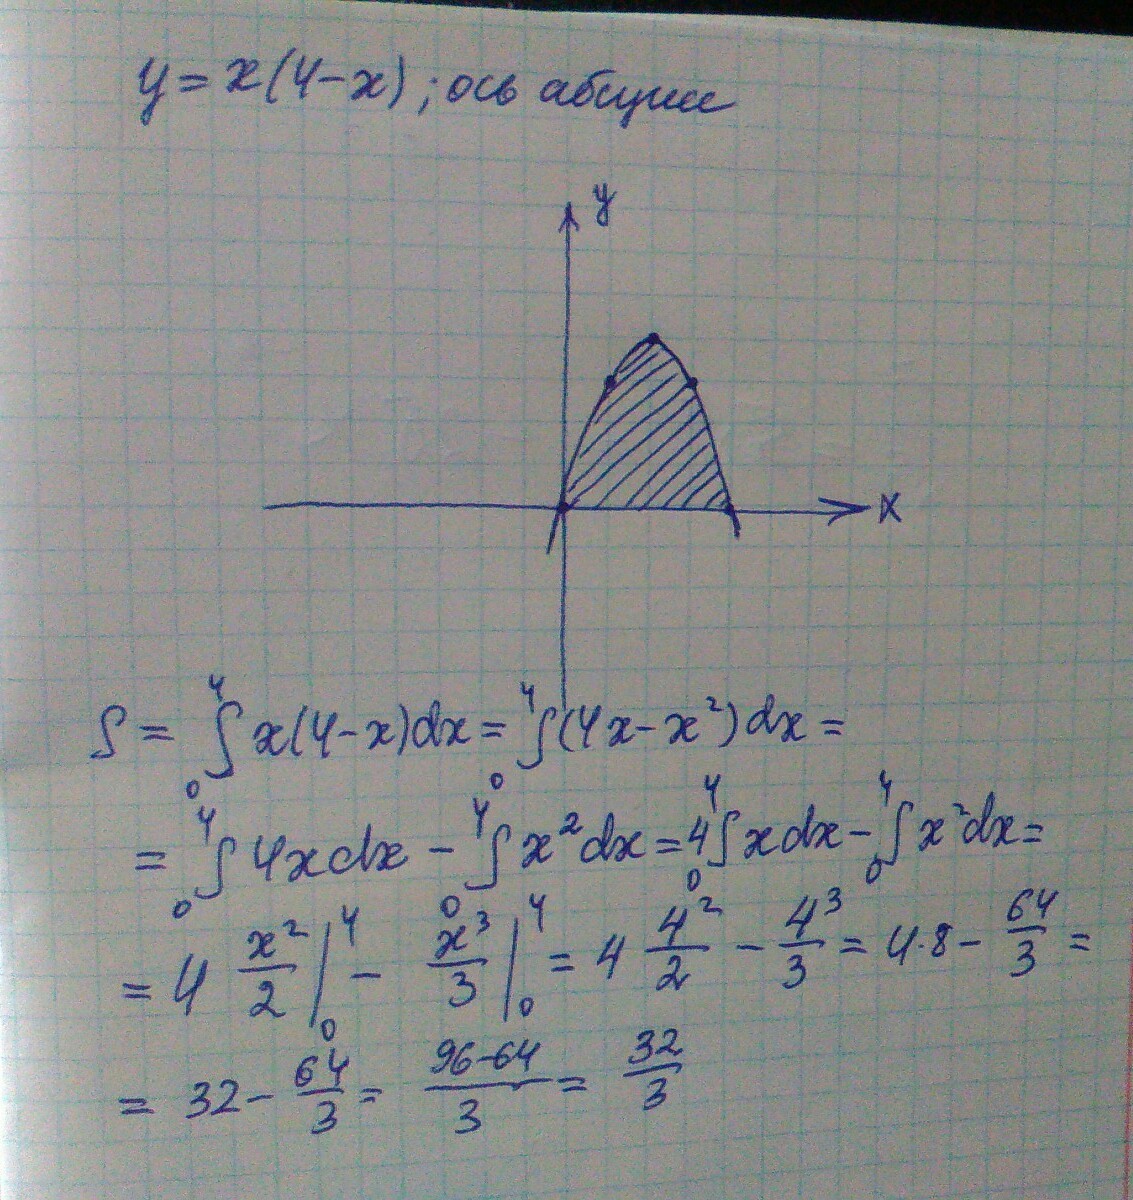 y = x(4-x); ось абсцисс
y
x
S = ∫₀⁴ x(4-x)dx = ∫₀⁴ (4x-x²)dx =
= ∫₀⁴ 4xdx - ∫₀⁴ x²dx = 4∫₀⁴ xdx - ∫₀⁴ x²dx =
= 4 x²/2 |₀⁴ - x³/3 |₀⁴ = 4 4²/2 - 4³/3 = 4·8 - 64/3 =
= 32 - 64/3 = 96-64/3 = 32/3